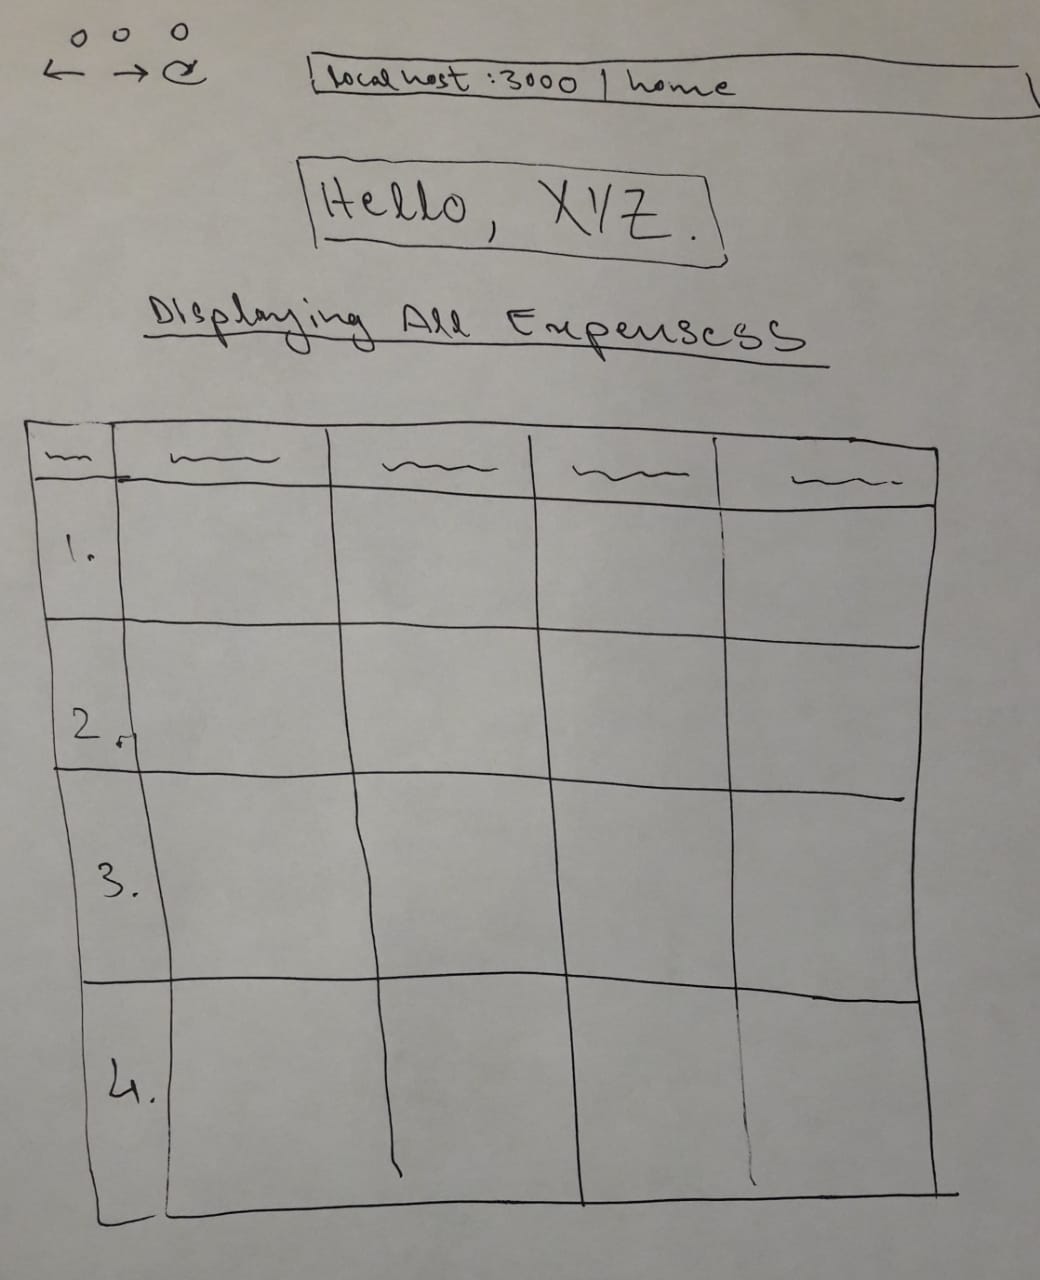 localhost:3000 | home
Hello, XYZ.
Displaying All Expensess
1.
2.
3.
4.